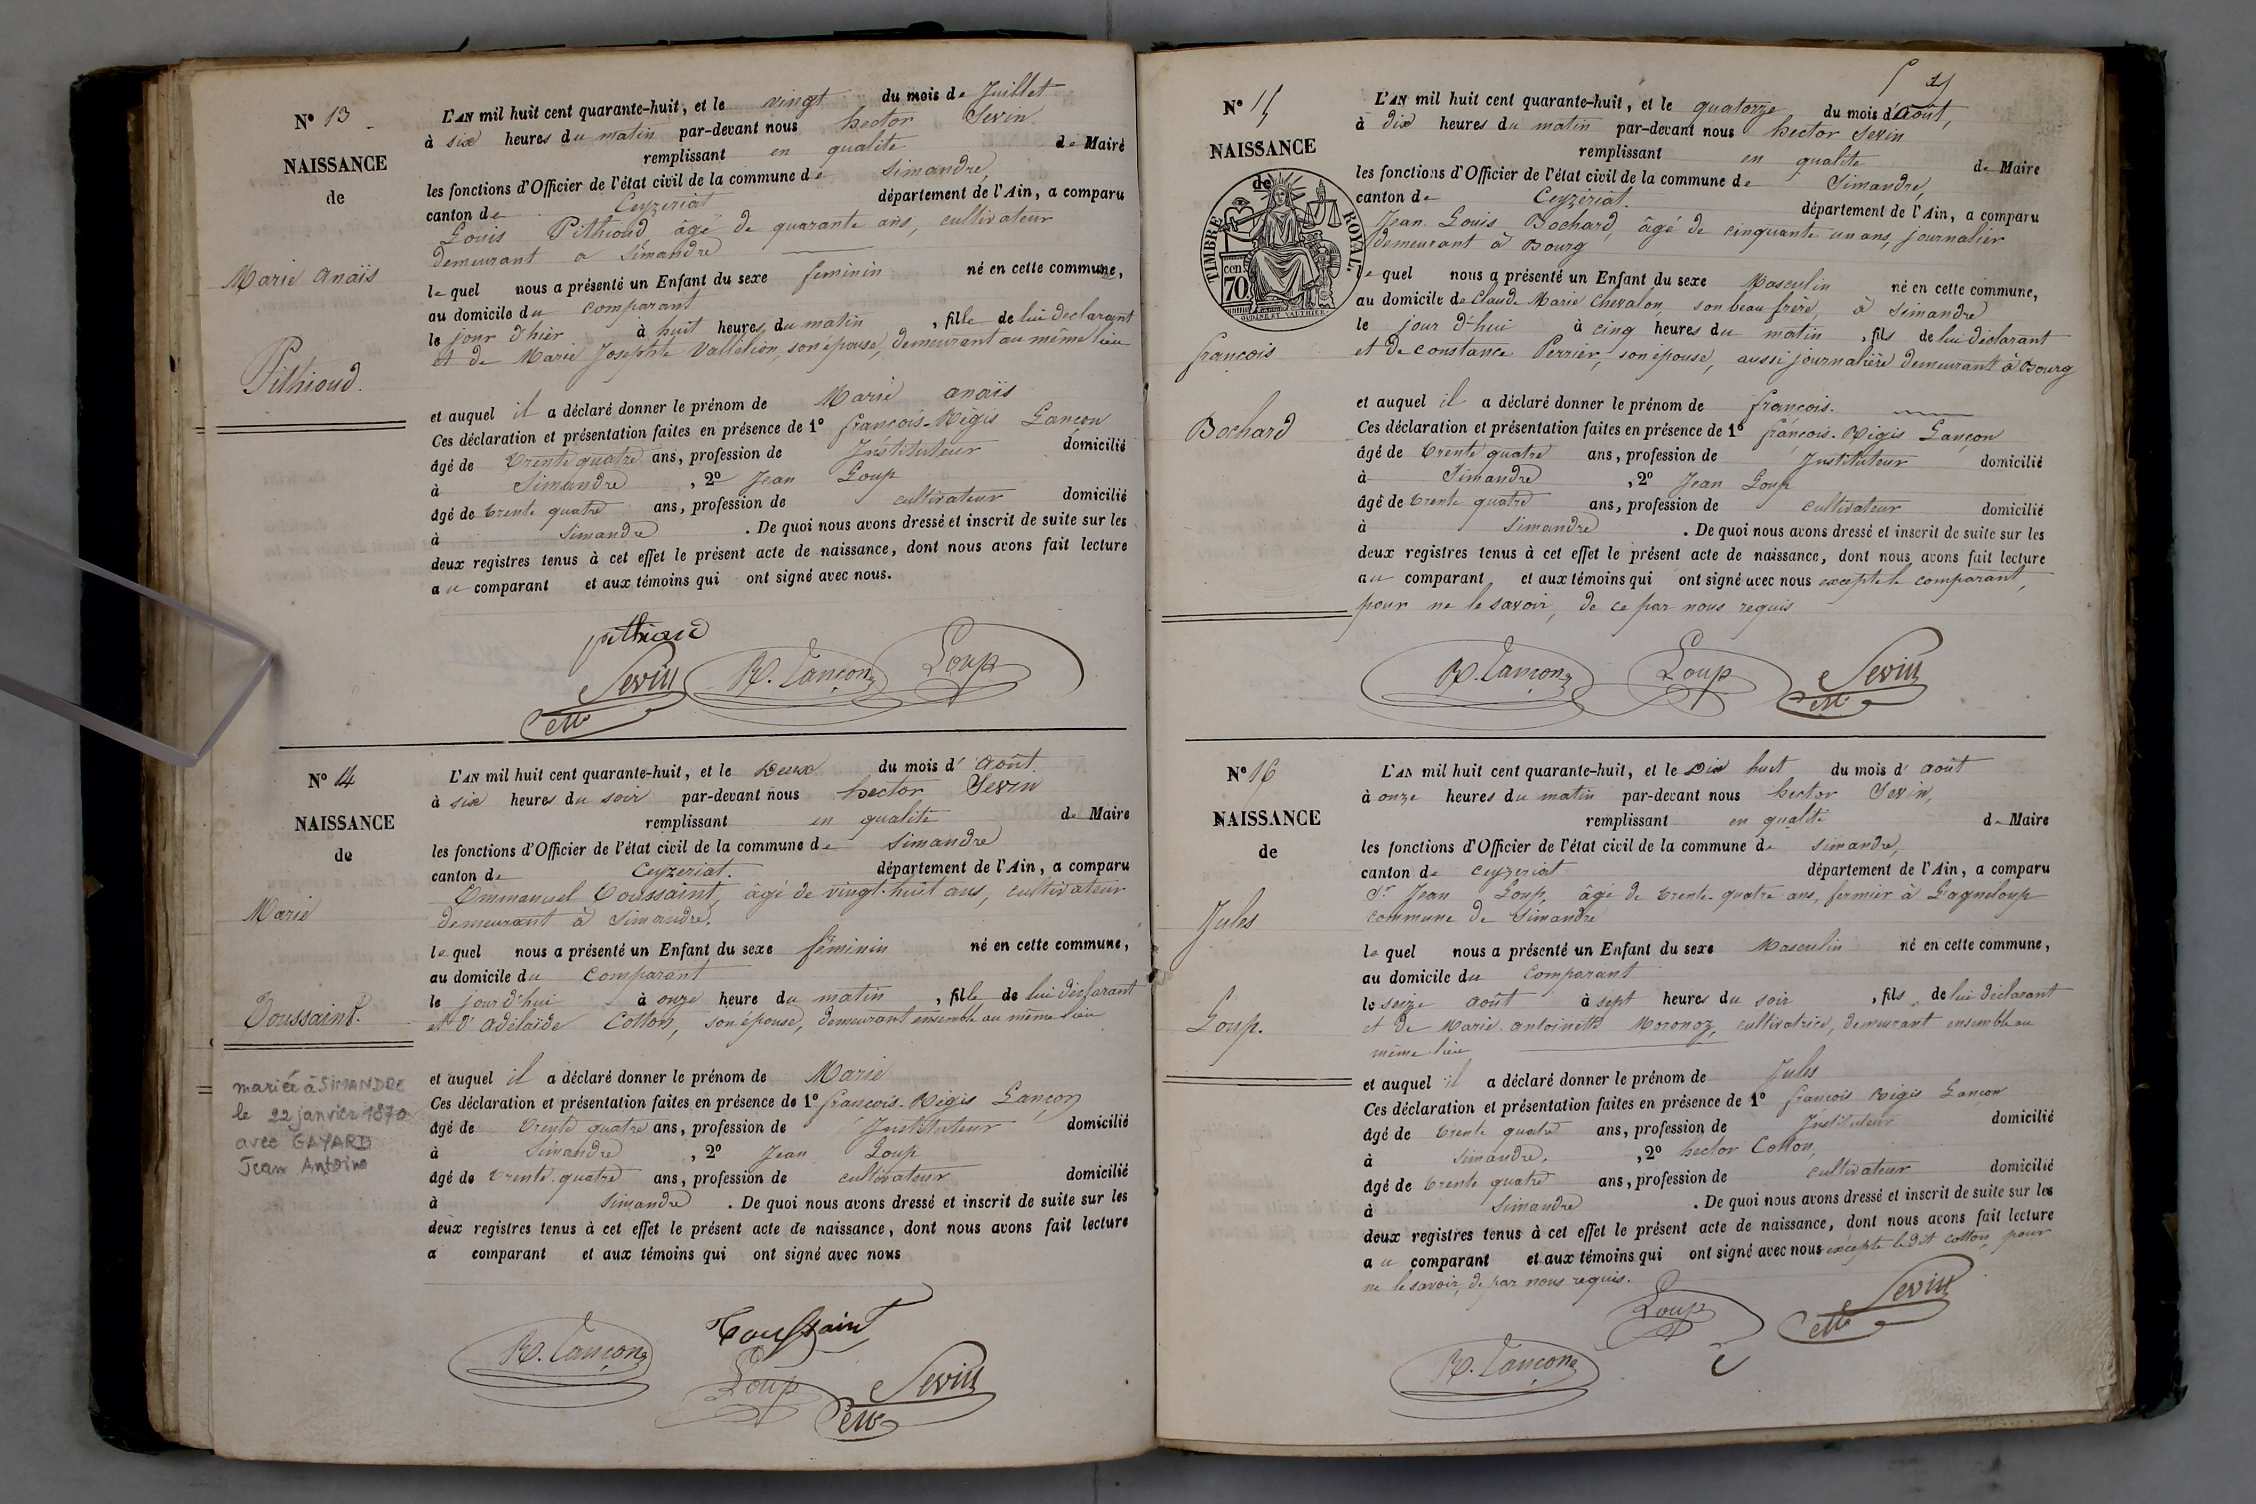 N° 13
NAISSANCE
de
Marie Anaïs
Pithioud.
L'AN mil huit cent quarante-huit, et le vingt du mois de Juillet
à six heures du matin par-devant nous hector Sevin
remplissant en qualité de Maire
les fonctions d'Officier de l'état civil de la commune de Simandre,
canton de Ceyzeriat département de l'Ain, a comparu
Louis Pithioud âgé de quarante ans, cultivateur
demeurant à Simandre
lequel nous a présenté un Enfant du sexe feminin né en cette commune,
au domicile du comparant
le jour d'hier à huit heures du matin, fille de lui declarant
et de Marie Josephte son épouse, demeurant au même lieu
et auquel il a déclaré donner le prénom de Marie anaïs
Ces déclaration et présentation faites en présence de 1° françois-Régis Lançon
âgé de trente quatre ans, profession de Instituteur domicilié
à Simandre, 2° Jean Loup
âgé de trente quatre ans, profession de cultivateur domicilié
à Simandre. De quoi nous avons dressé et inscrit de suite sur les
deux registres tenus à cet effet le présent acte de naissance, dont nous avons fait lecture
au comparant et aux témoins qui ont signé avec nous.
pithioud
Sevin R. Lançon Loup
N° 14
NAISSANCE
de
Marie
Toussaint.
mariée à SIMANDRE
le 22 janvier 1870
avec GAYARD
Jean Antoine
L'AN mil huit cent quarante-huit, et le Deux du mois d'Août
à six heures du soir par-devant nous hector Sevin
remplissant en qualité de Maire
les fonctions d'Officier de l'état civil de la commune de Simandre
canton de Ceyzeriat. département de l'Ain, a comparu
Emmanuel Toussaint, âgé de vingt-huit ans, cultivateur
demeurant à Simandre.
lequel nous a présenté un Enfant du sexe féminin né en cette commune,
au domicile du comparant
le jour d'hui à onze heure du matin, fille de lui déclarant
et d'adélaïde Cotton, son épouse, demeurant ensemble au même lieu
et auquel il a déclaré donner le prénom de Marie
Ces déclaration et présentation faites en présence de 1° francois-Régis Lançon
âgé de trente quatre ans, profession de Instituteur domicilié
à Simandre, 2° Jean Loup
âgé de trente-quatre ans, profession de cultivateur domicilié
à Simandre. De quoi nous avons dressé et inscrit de suite sur les
deux registres tenus à cet effet le présent acte de naissance, dont nous avons fait lecture
a comparant et aux témoins qui ont signé avec nous
Toussaint
R. Lançon
Loup Sevin
N° 15
NAISSANCE
de
TIMBRE ROYAL.
cen. 70.
françois
Bochard
L'AN mil huit cent quarante-huit, et le quatorze du mois d'Août,
à dix heures du matin par-devant nous hector Sevin
remplissant en qualité de Maire
les fonctions d'Officier de l'état civil de la commune de Simandre,
canton de Ceyzériat. département de l'Ain, a comparu
Jean Louis Bochard, âgé de cinquante un ans, journalier
demeurant à Bourg
lequel nous a présenté un Enfant du sexe Masculin né en cette commune,
au domicile de Claude Marie Chevalon, son beau frère, à Simandre
le jour d'hui à cinq heures du matin, fils de lui déclarant
et de constance Perrier, son épouse, aussi journalière demeurant à Bourg
et auquel il a déclaré donner le prénom de françois.
Ces déclaration et présentation faites en présence de 1° françois-Régis Lançon
âgé de trente quatre ans, profession de Instituteur domicilié
à Simandre, 2° Jean Loup
âgé de trente quatre ans, profession de cultivateur domicilié
à Simandre. De quoi nous avons dressé et inscrit de suite sur les
deux registres tenus à cet effet le présent acte de naissance, dont nous avons fait lecture
au comparant et aux témoins qui ont signé avec nous excepté le comparant,
pour ne le savoir, de ce par nous requis
R. Lançon Loup Sevin
N° 16
NAISSANCE
de
Jules
Loup.
L'AN mil huit cent quarante-huit, et le Dix huit du mois d'août
à onze heures du matin par-devant nous hector Sevin,
remplissant en qualité de Maire
les fonctions d'Officier de l'état civil de la commune de Simandre,
canton de ceyzeriat département de l'Ain, a comparu
Sr. Jean Loup, âgé de trente-quatre ans, fermier à Gagneloup
commune de Simandre
lequel nous a présenté un Enfant du sexe Masculin né en cette commune,
au domicile du comparant
le seize août à sept heures du soir, fils de lui déclarant
et de Marie antoinette Moronoz, cultivatrice, demeurant ensemble au
même lieu
et auquel il a déclaré donner le prénom de Jules
Ces déclaration et présentation faites en présence de 1° francois Régis Lançon
âgé de trente quatre ans, profession de Instituteur domicilié
à Simandre, 2° hector Cotton,
âgé de trente quatre ans, profession de cultivateur domicilié
à Simandre. De quoi nous avons dressé et inscrit de suite sur les
deux registres tenus à cet effet le présent acte de naissance, dont nous avons fait lecture
au comparant et aux témoins qui ont signé avec nous excepté ledit cotton, pour
ne le savoir, de par nous requis.
Loup Sevin
R. Lançon